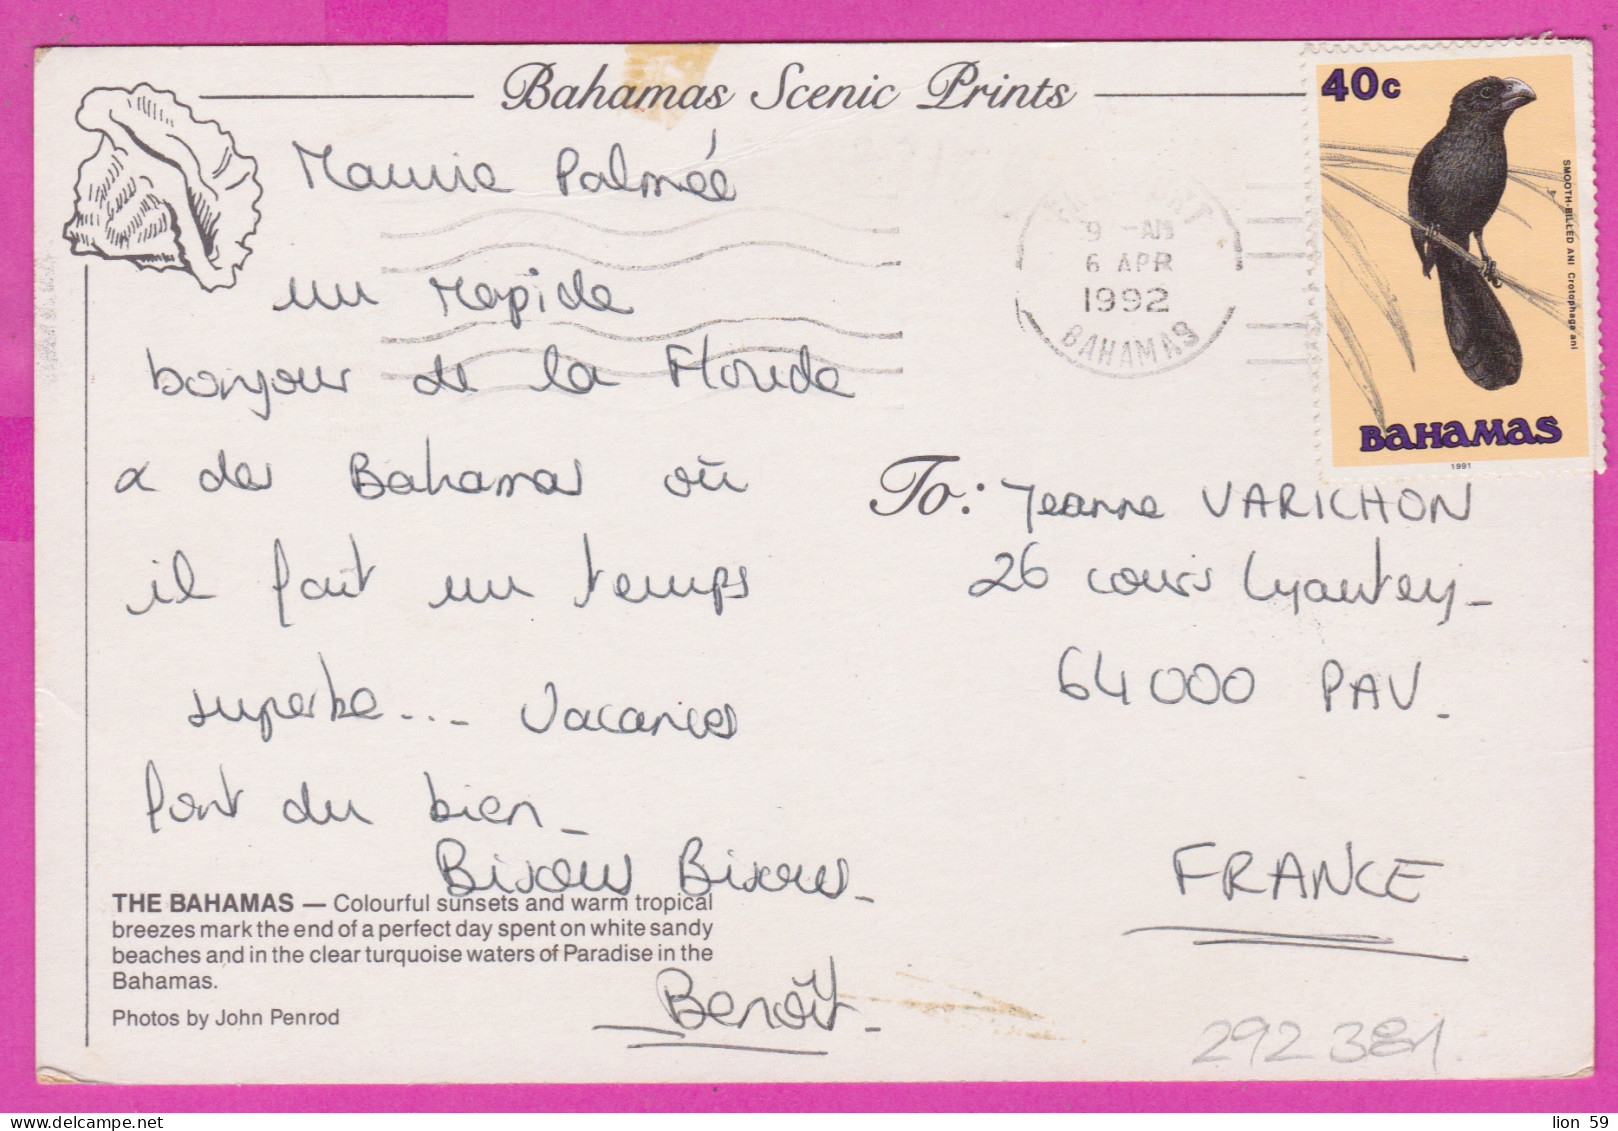 Bahamas Scenic Prints
40c
SMOOTH-BILLED ANI Crotophaga ani
BAHAMAS
1991
9 -AM
6 APR
1992
BAHAMAS
Mamie Palmée
un rapide
bonjour de la Floride
& des Bahamas où
il fait un temps
superbe... Vacances
font du bien_
Bisous Bisous_
Benoît_
To: Jeanne VARICHON
26 cours Lyautey_
64000 PAU_
FRANCE
THE BAHAMAS — Colourful sunsets and warm tropical
breezes mark the end of a perfect day spent on white sandy
beaches and in the clear turquoise waters of Paradise in the
Bahamas.
Photos by John Penrod
292381
lion 59